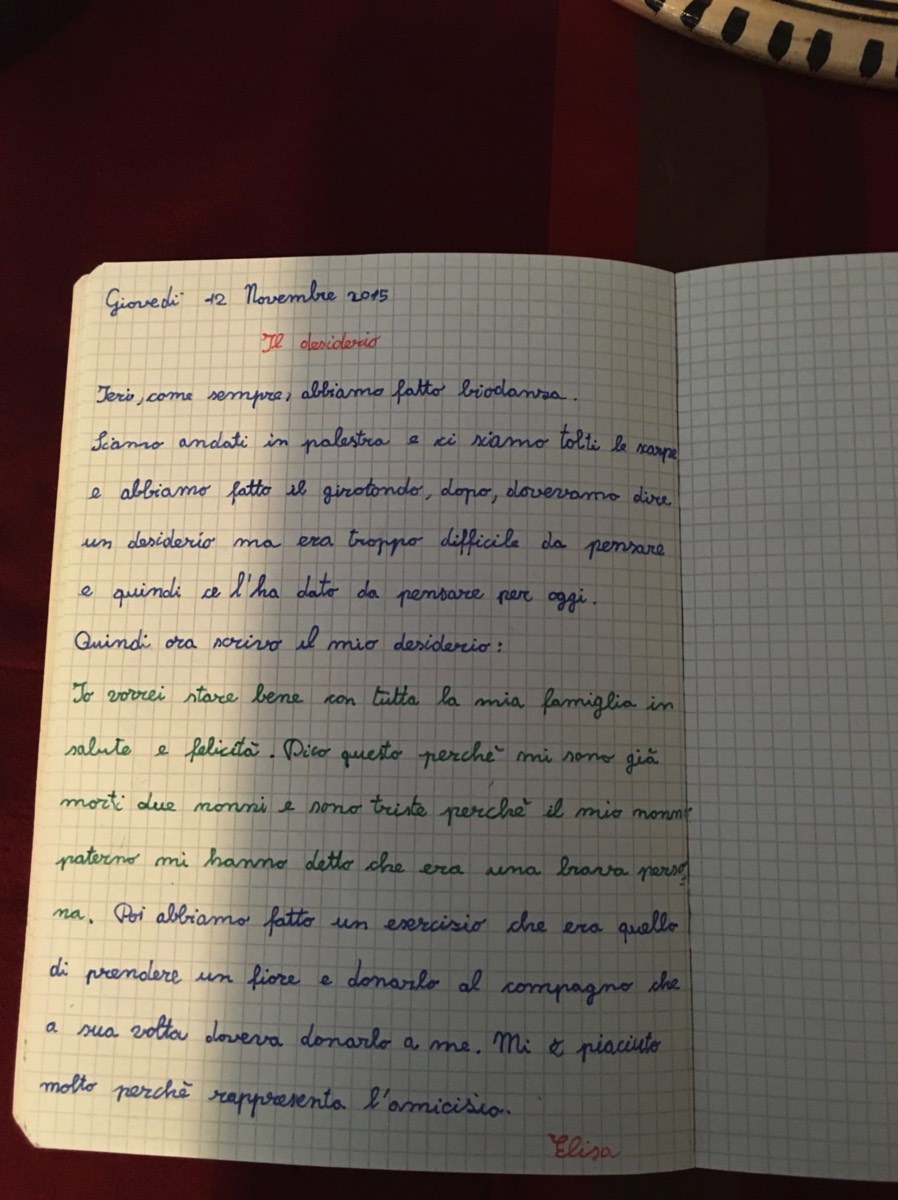 Giovedì 12 Novembre 2015
Il desiderio
Ieri, come sempre, abbiamo fatto biodanza.
Siamo andati in palestra e ci siamo tolti le scarpe
e abbiamo fatto il girotondo, dopo, dovevamo dire
un desiderio ma era troppo difficile da pensare
e quindi ce l'ha dato da pensare per oggi.
Quindi ora scrivo il mio desiderio:
Io vorrei stare bene con tutta la mia famiglia in
salute e felicità. Dico questo perchè mi sono già
morti due nonni e sono triste perchè il mio nonno
paterno mi hanno detto che era una brava perso
na. Poi abbiamo fatto un esercizio che era quello
di prendere un fiore e donarlo al compagno che
a sua volta doveva donarlo a me. Mi è piaciuto
molto perchè rappresenta l'amicizia.
Elisa